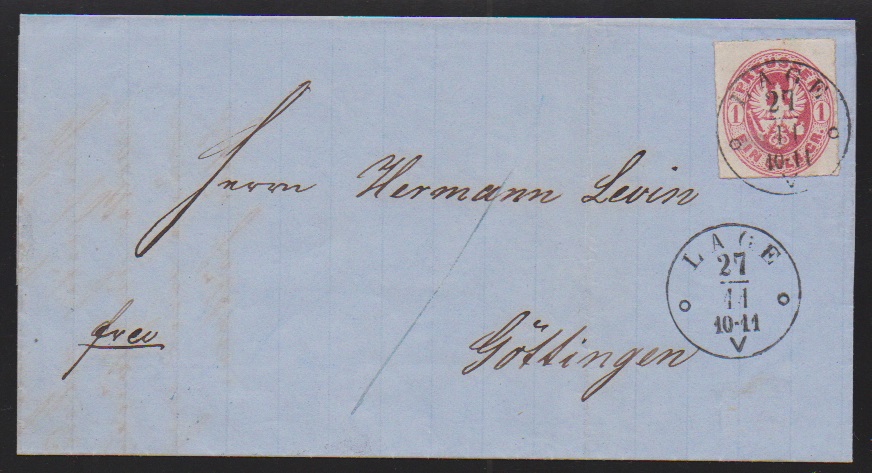 PREUSSEN
1 1
EIN SILB. GR.
LAGE
27
11
10-11
V
Herrn Hermann Levin
LAGE
27
11
10-11
V
frei
Göttingen